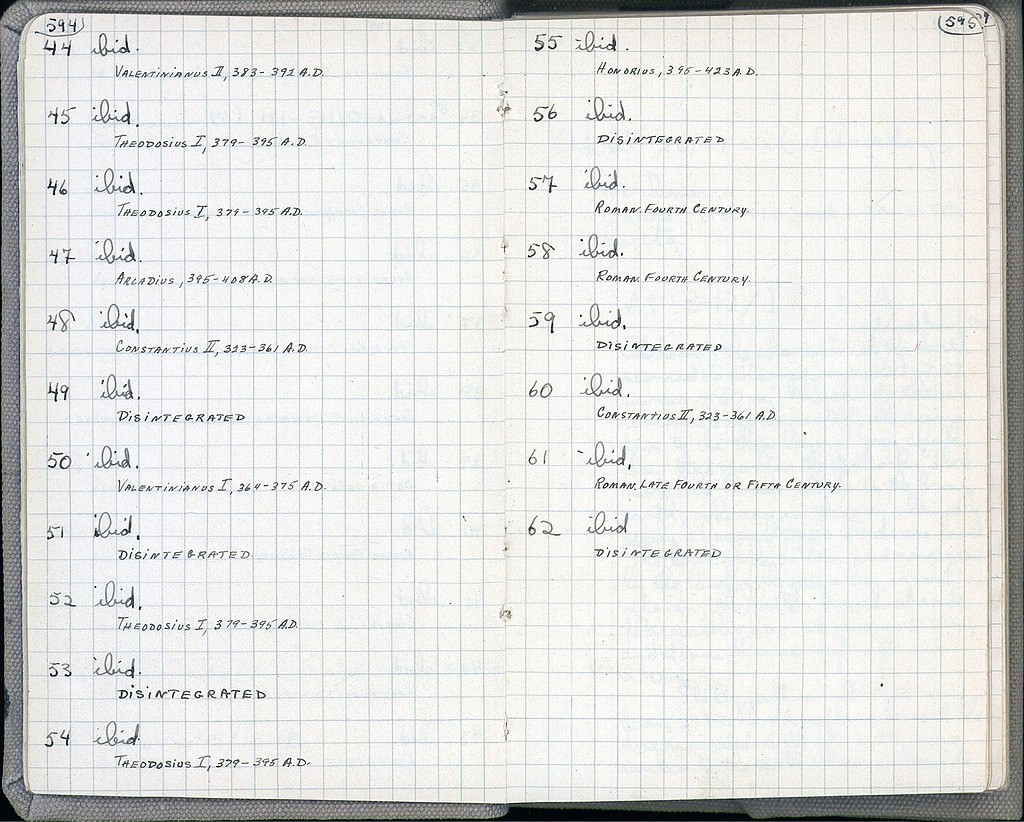 594
44 ibid.
VALENTINIANUS II, 383-392 A.D.
45 ibid.
THEODOSIUS I, 379-395 A.D.
46 ibid.
THEODOSIUS I, 379-395 A.D.
47 ibid.
ARCADIUS, 395-408 A.D.
48 ibid.
CONSTANTIUS II, 323-361 A.D.
49 ibid.
DISINTEGRATED
50 ibid.
VALENTINIANUS I, 364-375 A.D.
51 ibid.
DISINTEGRATED.
52 ibid.
THEODOSIUS I, 379-395 A.D.
53 ibid.
DISINTEGRATED
54 ibid.
THEODOSIUS I, 379-395 A.D.
595
55 ibid.
HONORIUS, 395-423 A.D.
56 ibid.
DISINTEGRATED
57 ibid.
ROMAN. FOURTH CENTURY.
58 ibid.
ROMAN. FOURTH CENTURY.
59 ibid.
DISINTEGRATED
60 ibid.
CONSTANTIUS II, 323-361 A.D.
61 ibid.
ROMAN. LATE FOURTH OR FIFTH CENTURY.
62 ibid
DISINTEGRATED